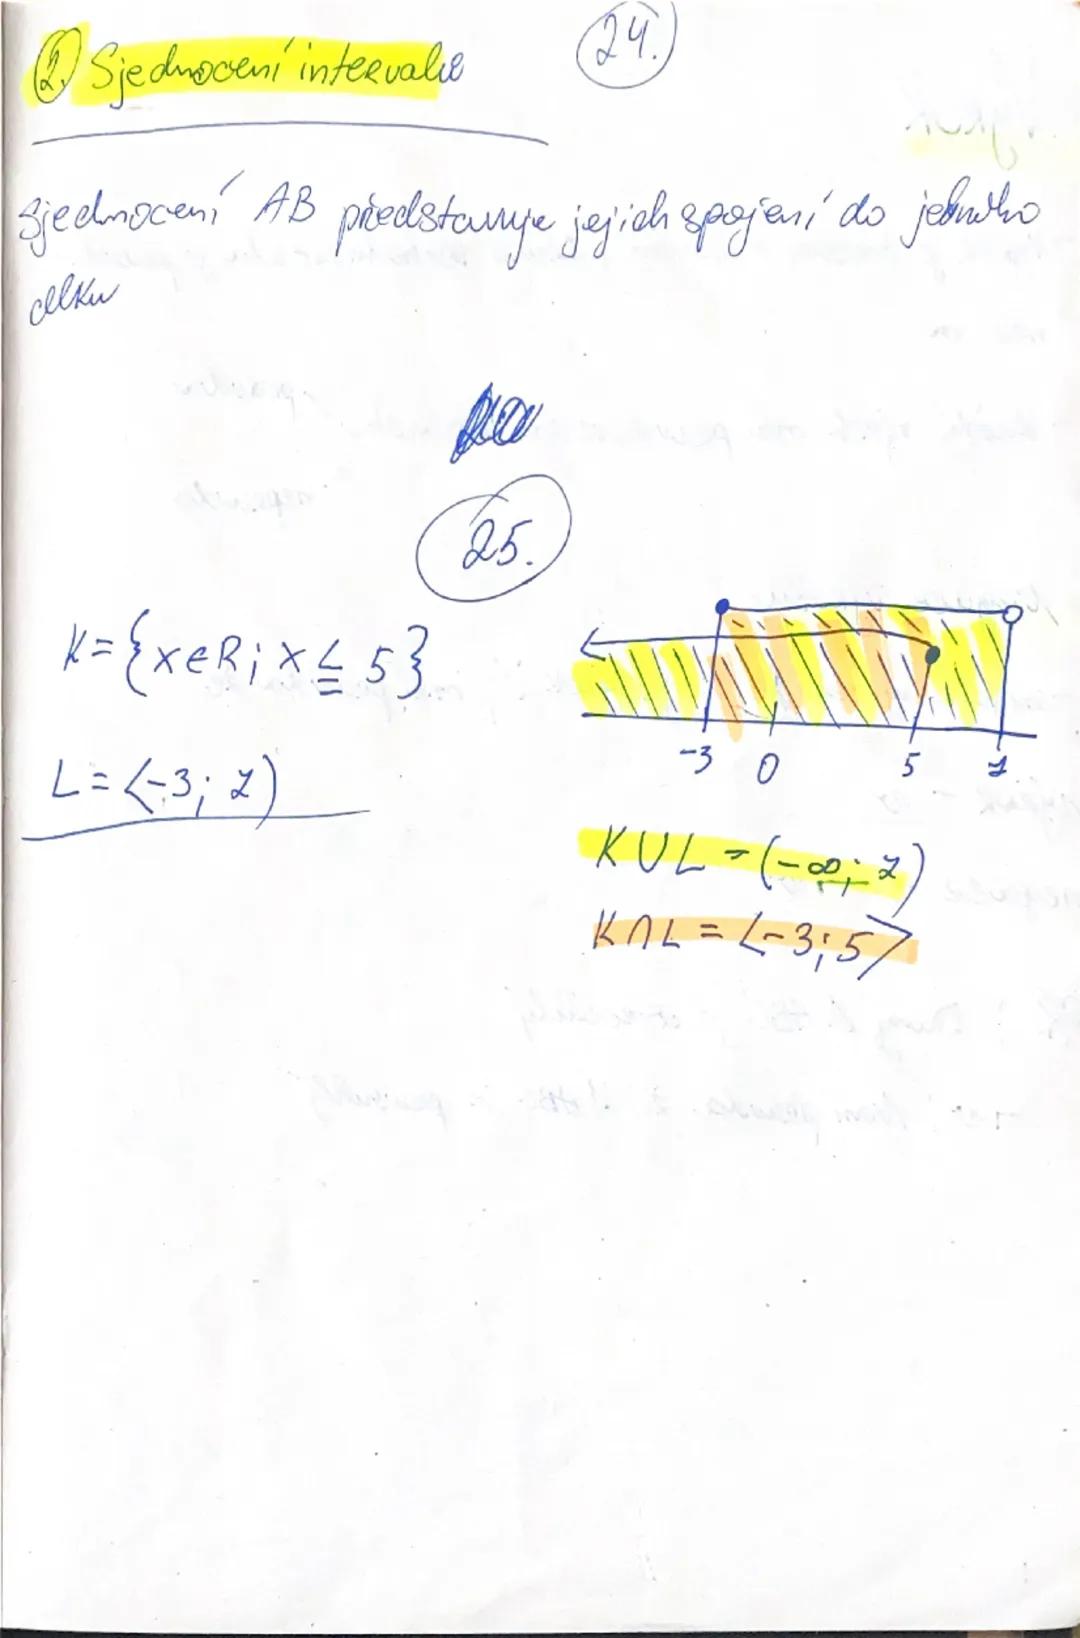 24.
2. Sjednocení intervalů
Sjednocení AB představuje jejich spojení do jednoho
celku
25.
K = {x∈R; x ≤ 5}
L = <-3; 7)
-3 0 5 7
K∪L = (-∞; 7)
K∩L = <-3; 5>